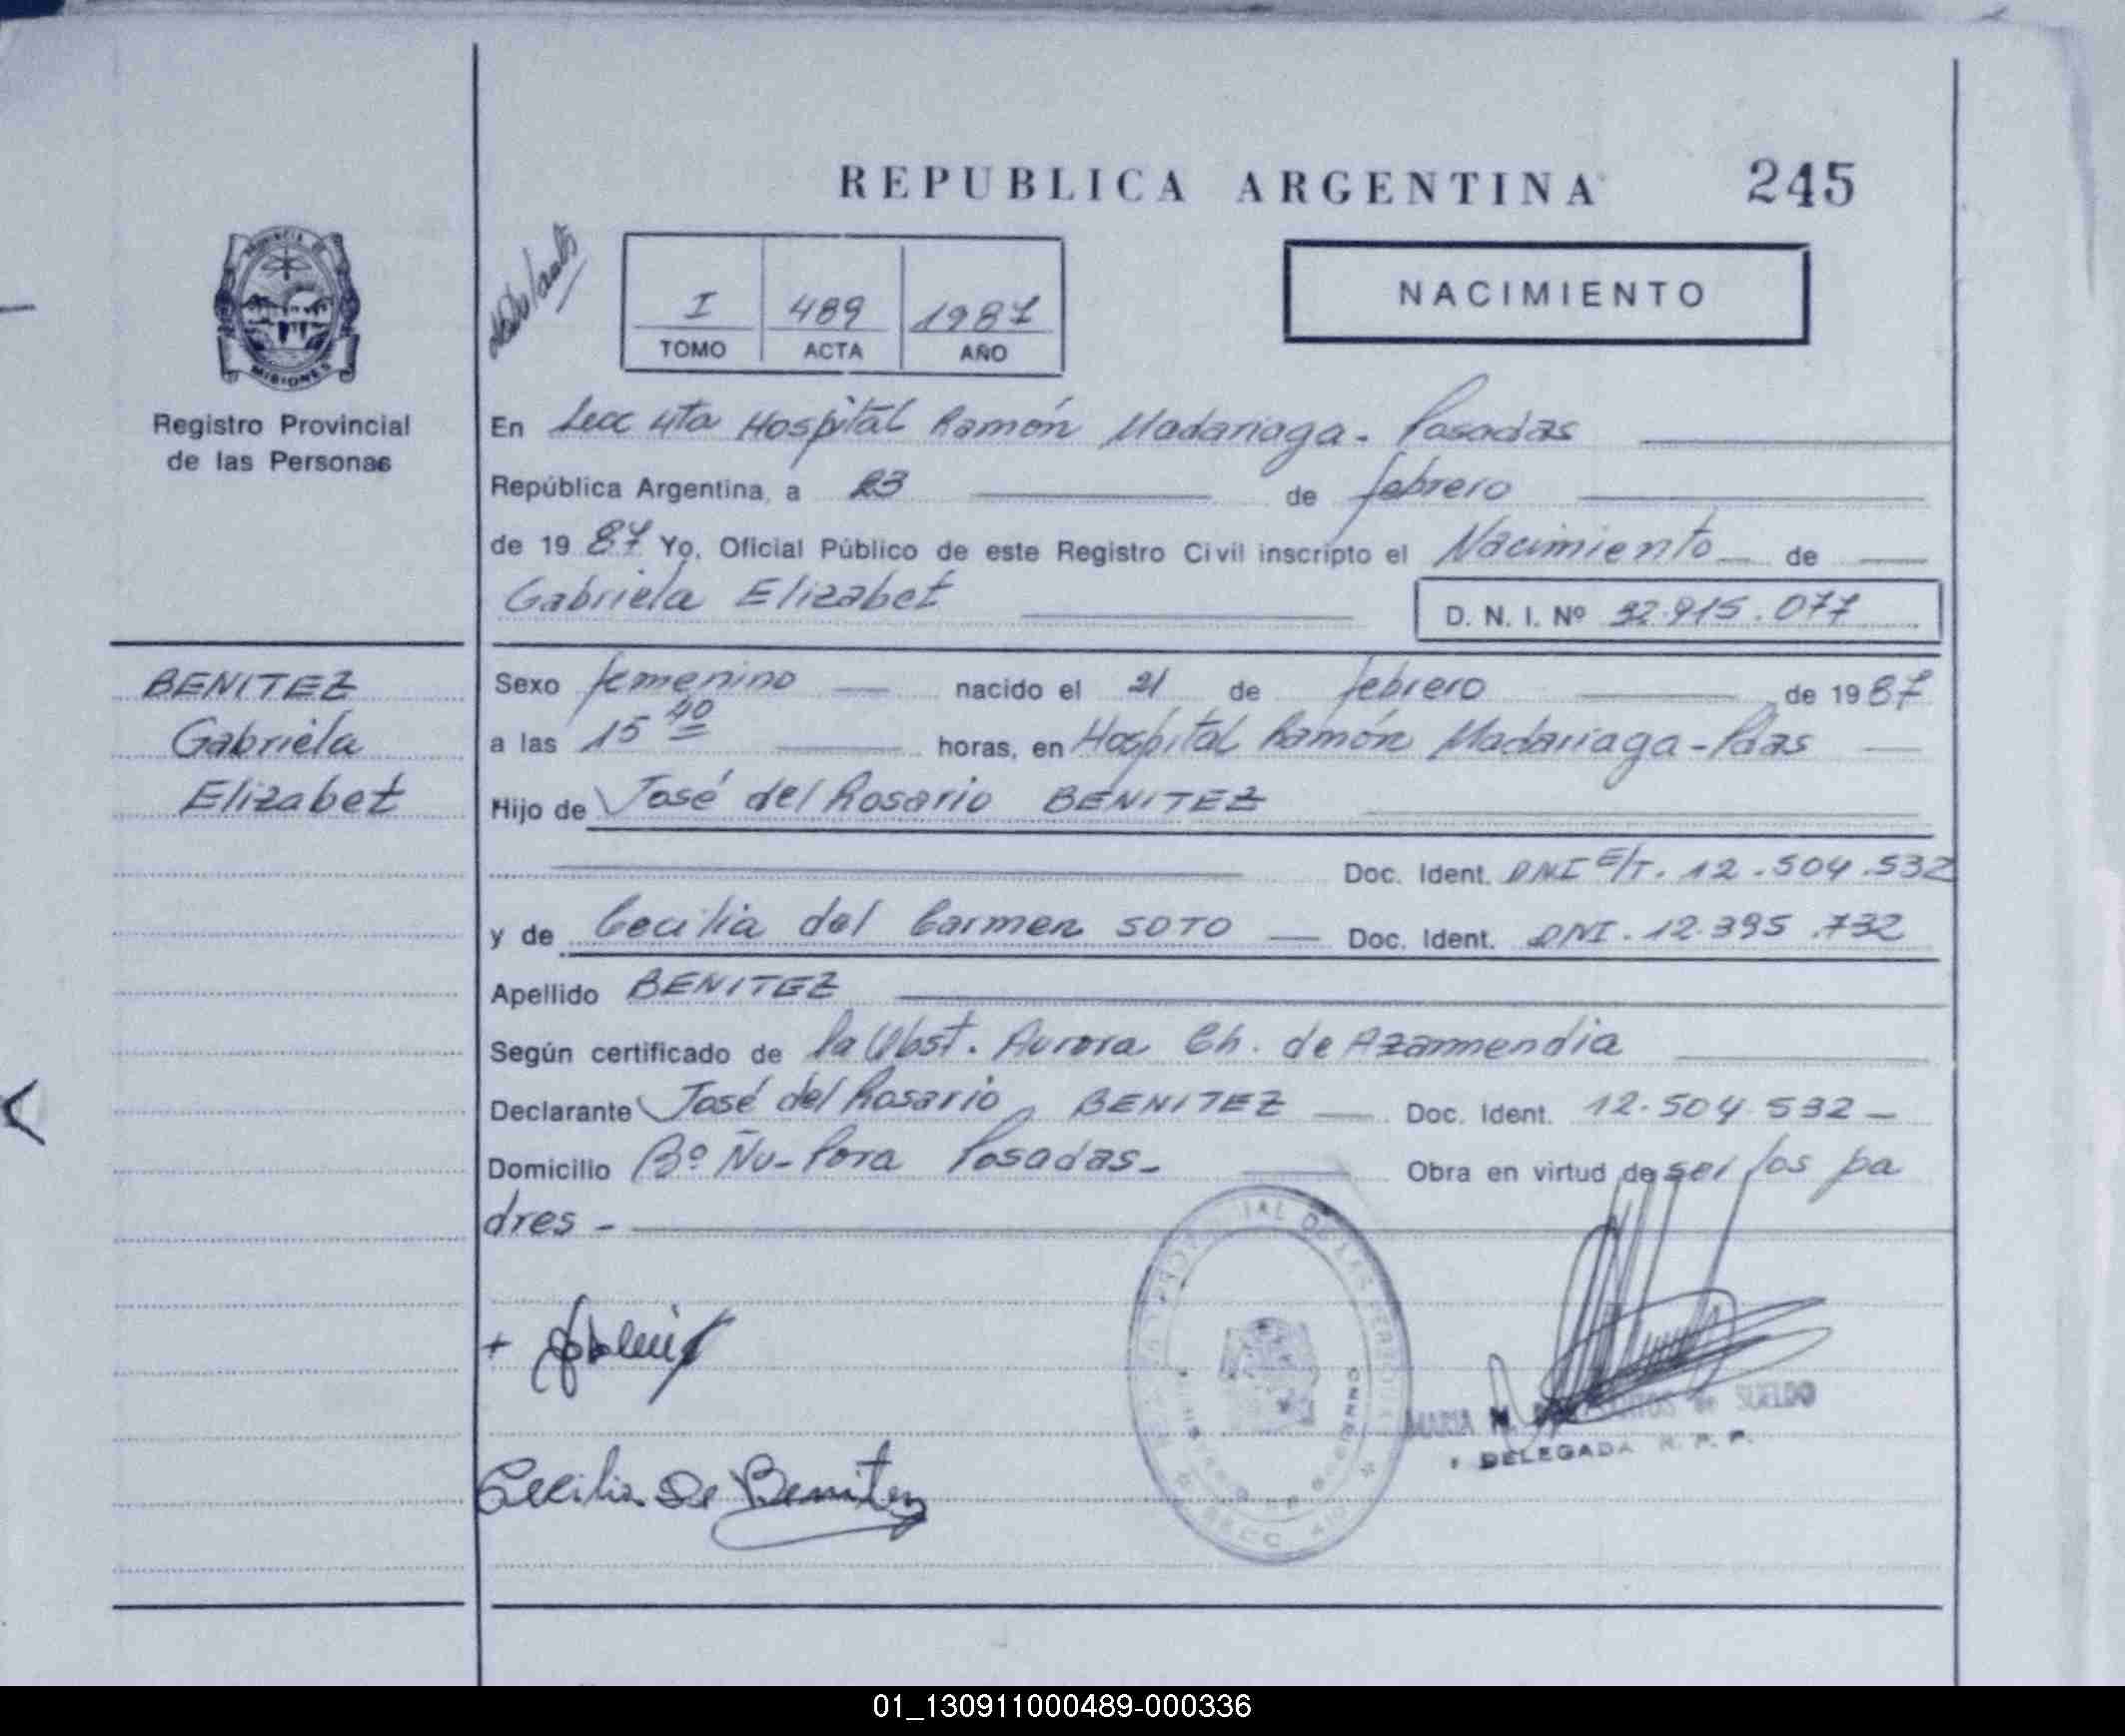 REPUBLICA ARGENTINA 245
I 489 1987
TOMO ACTA AÑO
NACIMIENTO
PROVINCIA DE
MISIONES
Registro Provincial
de las Personas
BENITEZ
Gabriela
Elizabet
En Secc 4ta Hospital Ramón Madariaga - Posadas
República Argentina, a 23 de febrero
de 19 87 Yo, Oficial Público de este Registro Civil inscripto el Nacimiento de
Gabriela Elizabet D. N. I. Nº 32.915.077
Sexo femenino nacido el 21 de febrero de 19 87
a las 15 40 horas, en Hospital Ramón Madariaga - Pdas
Hijo de José del Rosario BENITEZ
Doc. Ident. DNI E/T. 12.504.532
y de Cecilia del Carmen SOTO Doc. Ident. DNI. 12.395.732
Apellido BENITEZ
Según certificado de la Obst. Aurora Ch. de Azarmendia
Declarante José del Rosario BENITEZ Doc. Ident. 12.504.532 -
Domicilio Bº Ñu-Pora Posadas - Obra en virtud de ser los pa
dres -
Cecilia de Benitez
MARIA M. de SUELDO
DELEGADA R. P. P.
01_130911000489-000336